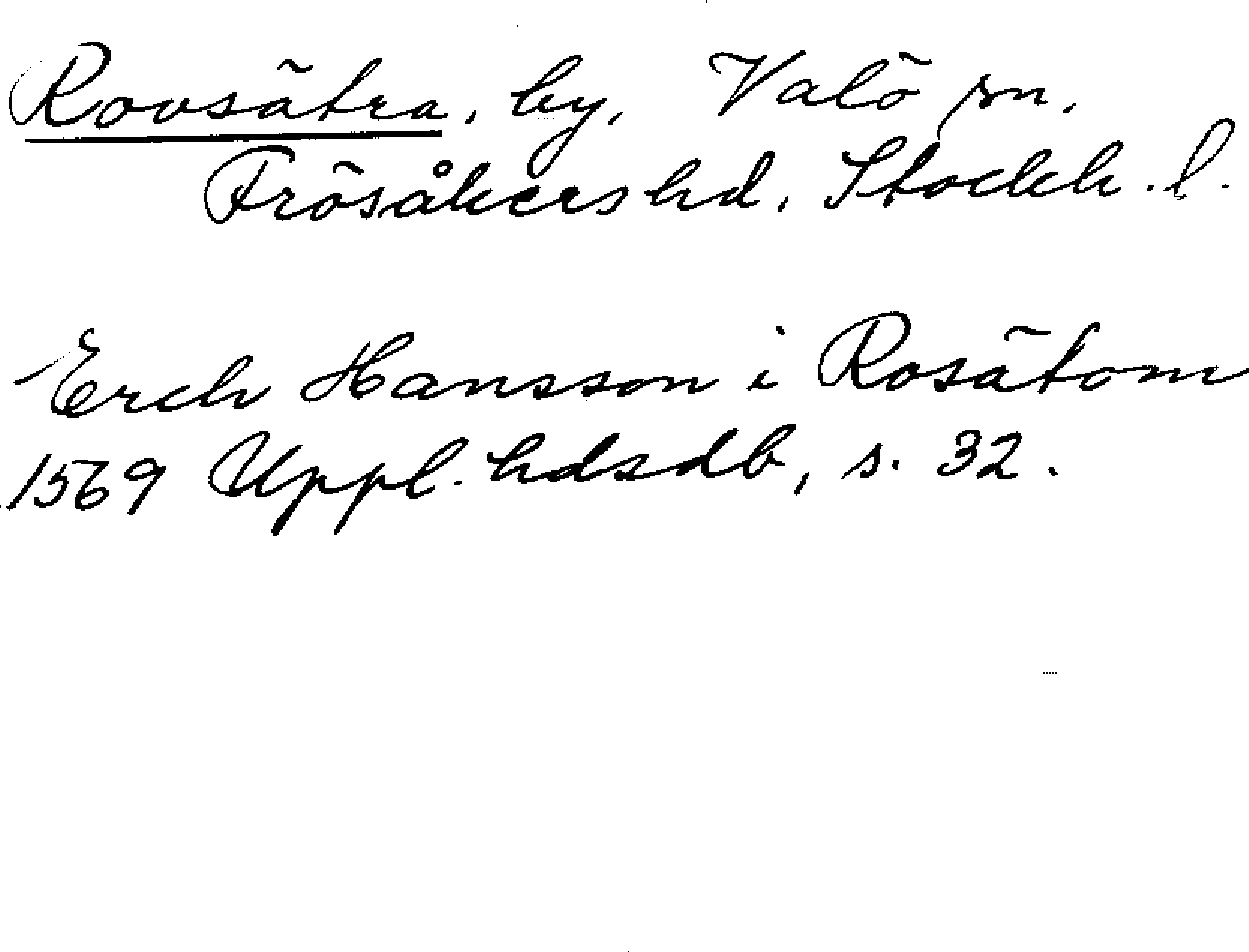 Rovsätra, by, Valö sn,
Frösåkers hd, Stockh. l.
Erch Hansson i Rosätom
1569 Uppl. hdsdb, s. 32.